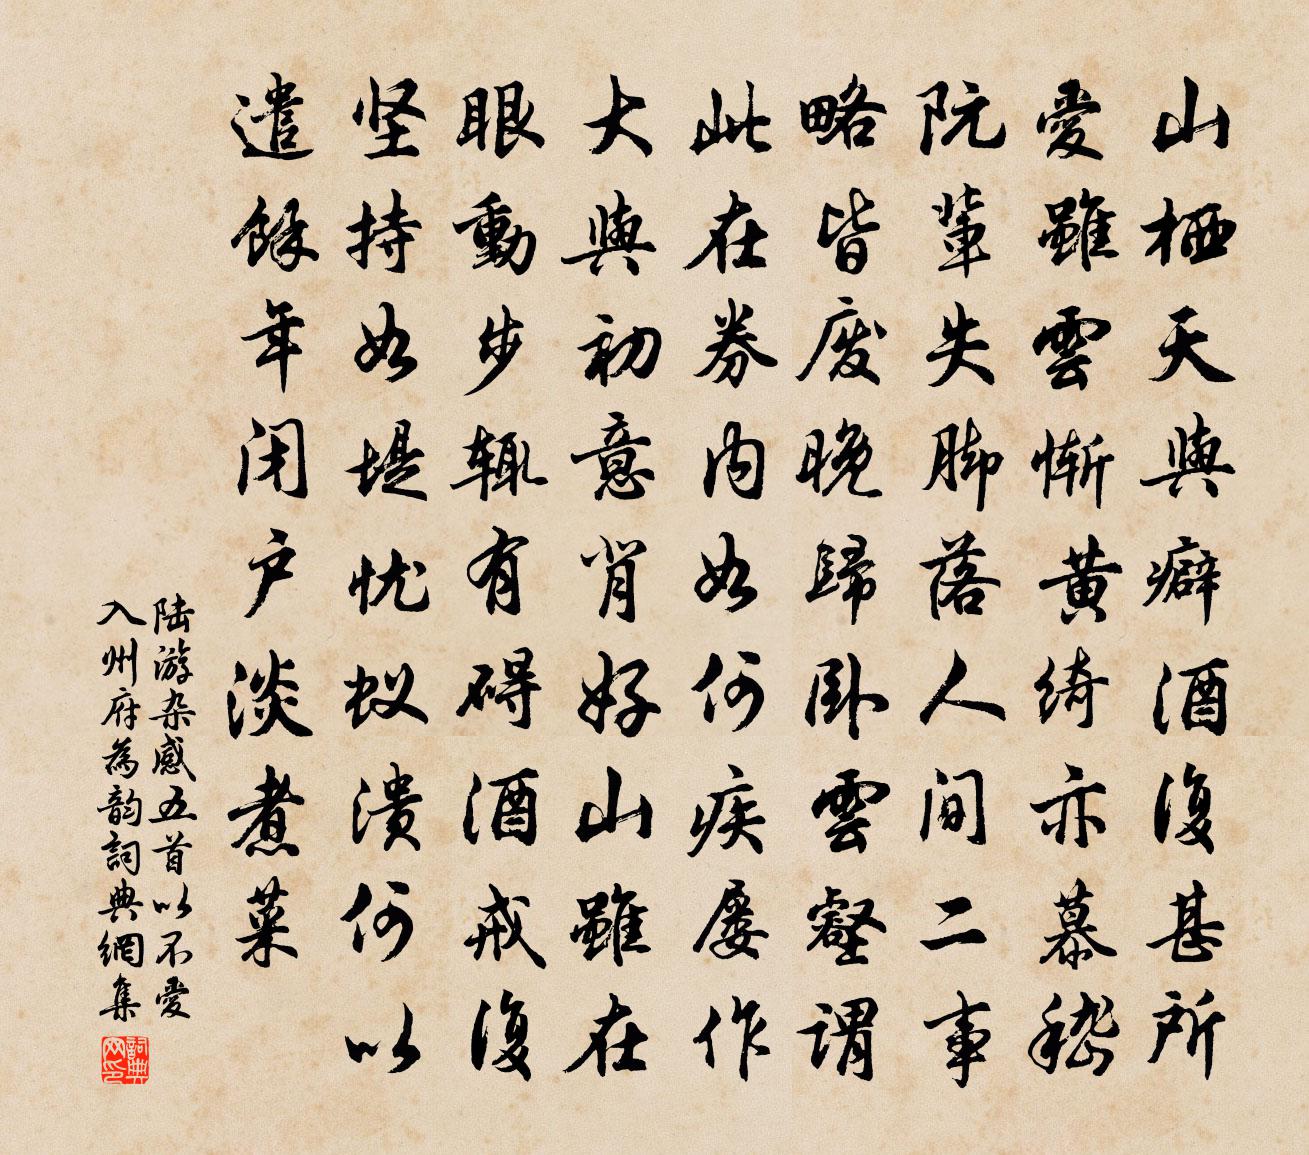 山栖天與癖酒復甚所
愛雖雲慚黄綺亦慕嵇
阮輩失脚落人间二事
略皆废晚歸卧雲壑謂
此在券内如何疾屡作
大與初意背好山雖在
眼動步辄有碍酒戒復
坚持如堤忧蚁溃何以
遣餘年闭户淡煮菜
陆游杂感五首以不愛
入州府為韵詞典網集
詞典网印